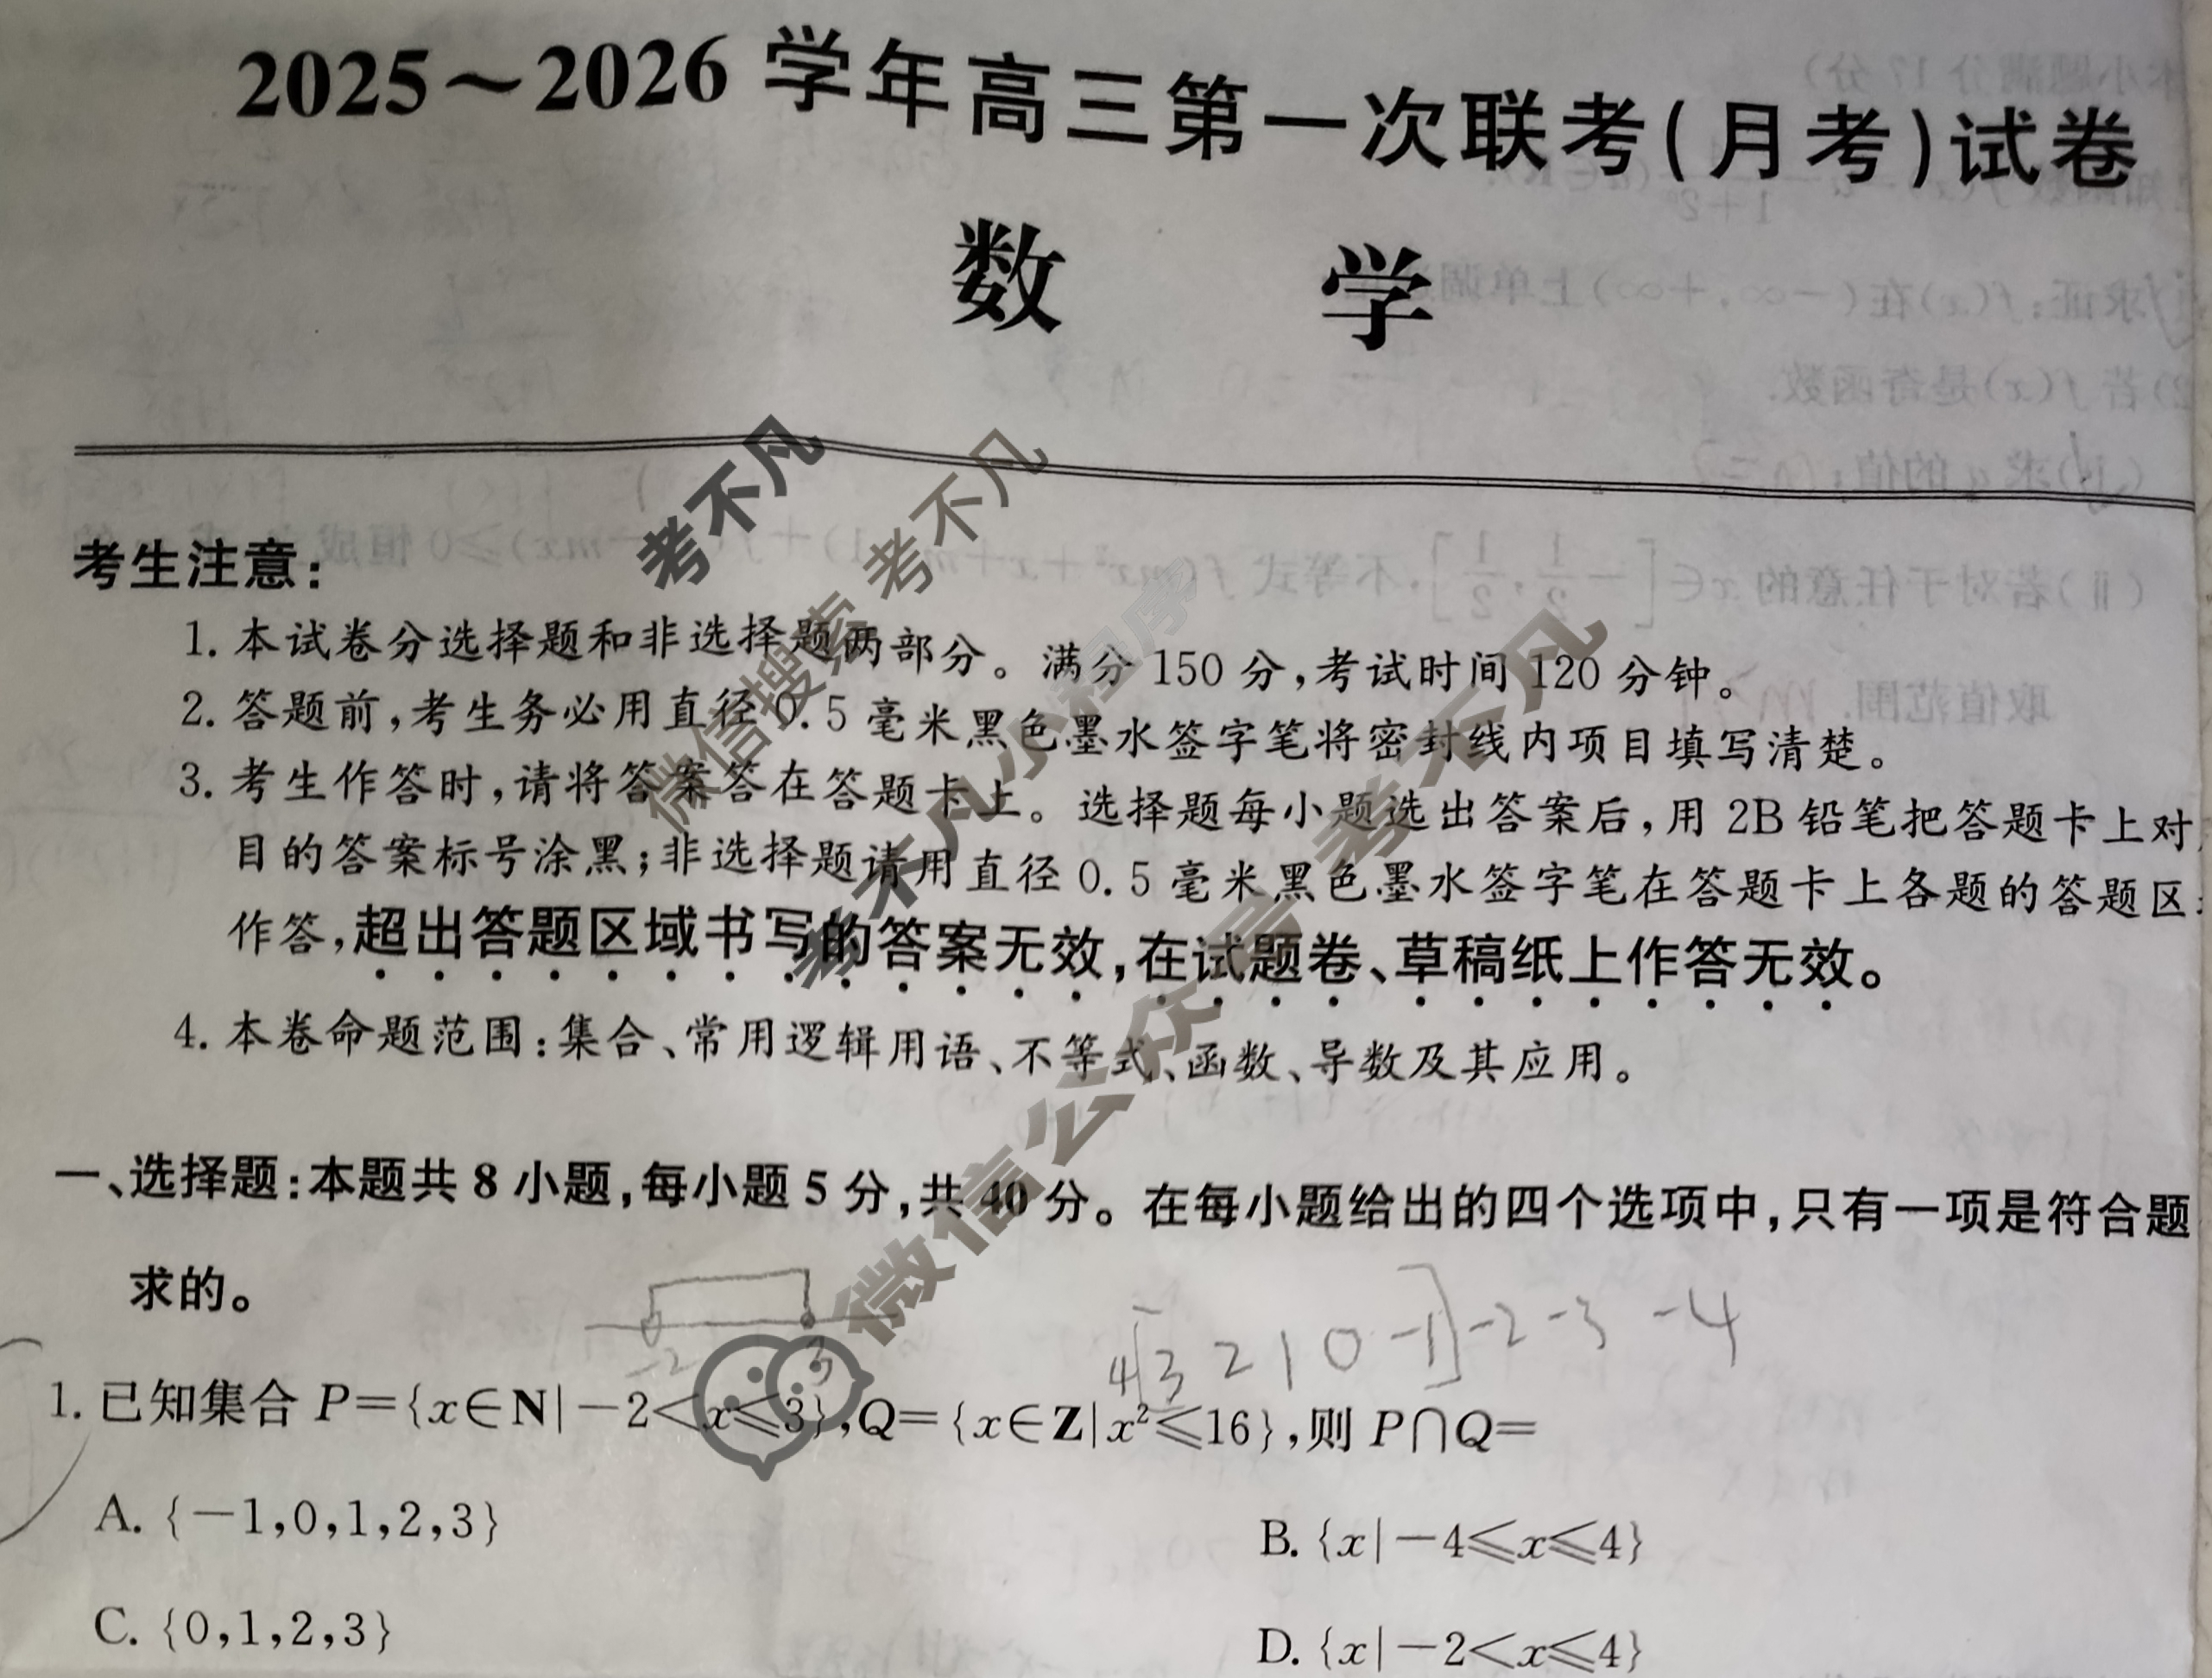 2025～2026学年高三第一次联考(月考)试卷
数 学
考生注意:
1. 本试卷分选择题和非选择题两部分。满分150分,考试时间120分钟。
2. 答题前,考生务必用直径0.5毫米黑色墨水签字笔将密封线内项目填写清楚。
3. 考生作答时,请将答案答在答题卡上。选择题每小题选出答案后,用2B铅笔把答题卡上对
目的答案标号涂黑;非选择题请用直径0.5毫米黑色墨水签字笔在答题卡上各题的答题区
作答,超出答题区域书写的答案无效,在试题卷、草稿纸上作答无效。
4. 本卷命题范围:集合、常用逻辑用语、不等式、函数、导数及其应用。
一、选择题:本题共8小题,每小题5分,共40分。在每小题给出的四个选项中,只有一项是符合题
求的。
-2 3
4[3 2 1 0 -1] -2 -3 -4
1. 已知集合 P={x∈N|-2<x⩽3},Q={x∈Z|x²⩽16},则 P∩Q=
A. {-1,0,1,2,3}
B. {x|-4⩽x⩽4}
C. {0,1,2,3}
D. {x|-2<x⩽4}
考不凡
微信搜索 考不凡
考不凡小程序
微信公众号 考不凡